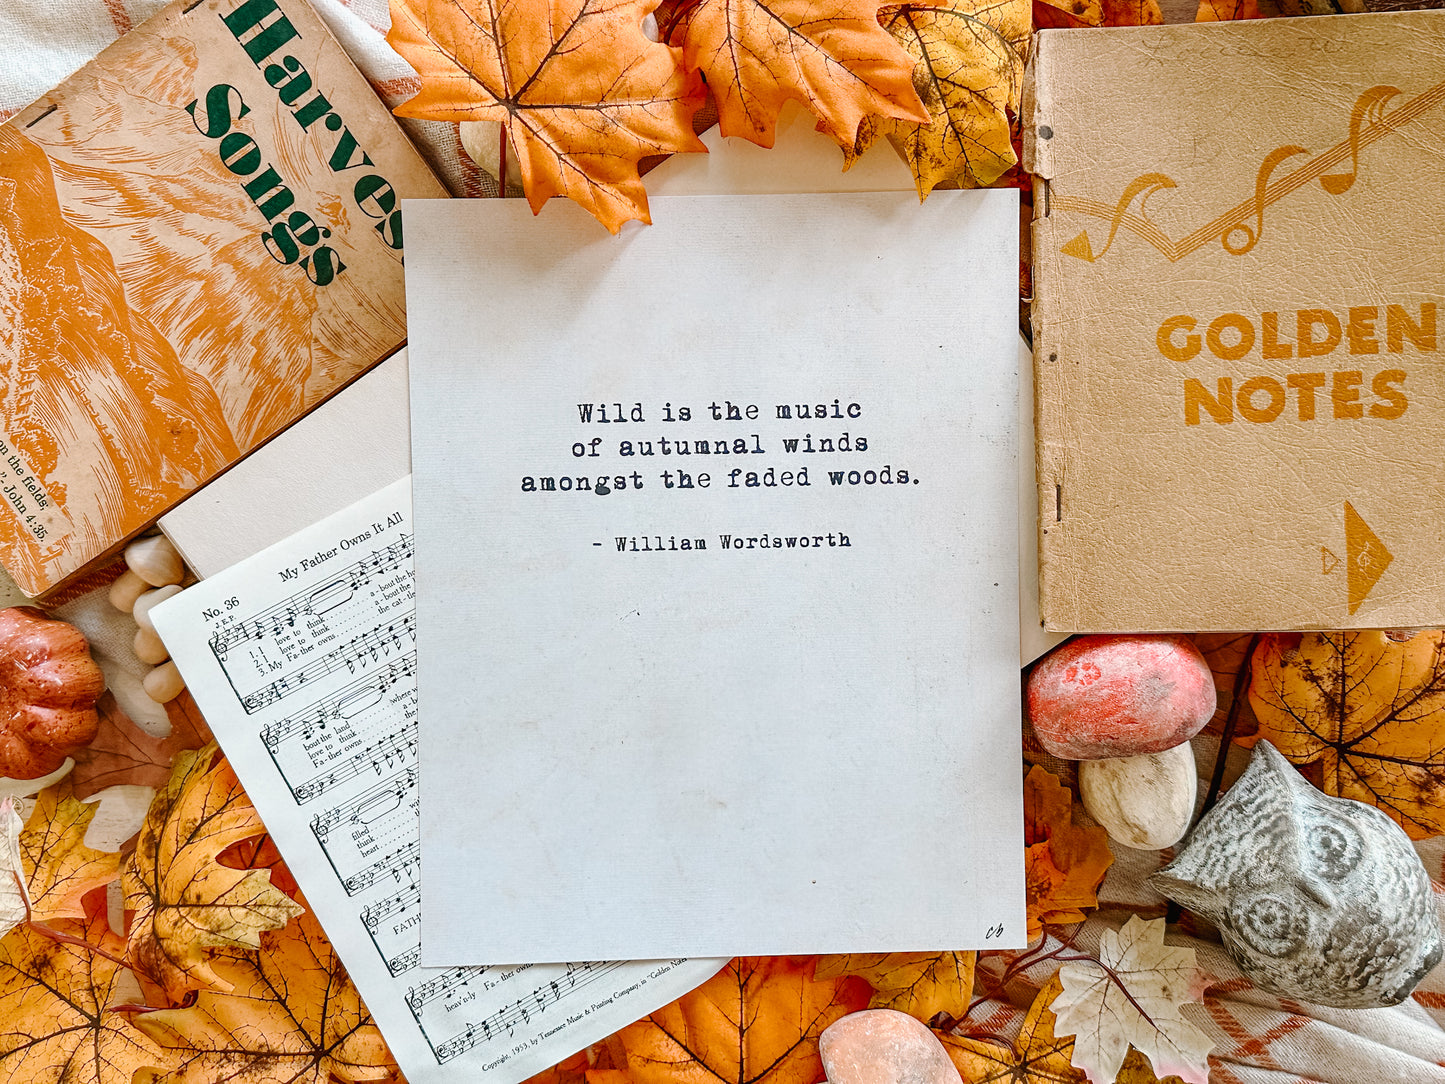 Harves
Songs
on the fields;
"- John 4:35.
GOLDEN
NOTES
Wild is the music
of autumnal winds
amongst the faded woods.
- William Wordsworth
cb
My Father Owns It All
No. 36
J. E. P.
1. I love to think a-bout the
2. I love to think a-bout the
3. My Fa-ther owns the cat-tle
where
bout the land
love to think
Fa-ther owns
filled
think
heart
FATH
heav'n-ly Fa-ther owns
Copyright, 1953, by Tennessee Music & Printing Company, in "Golden Notes